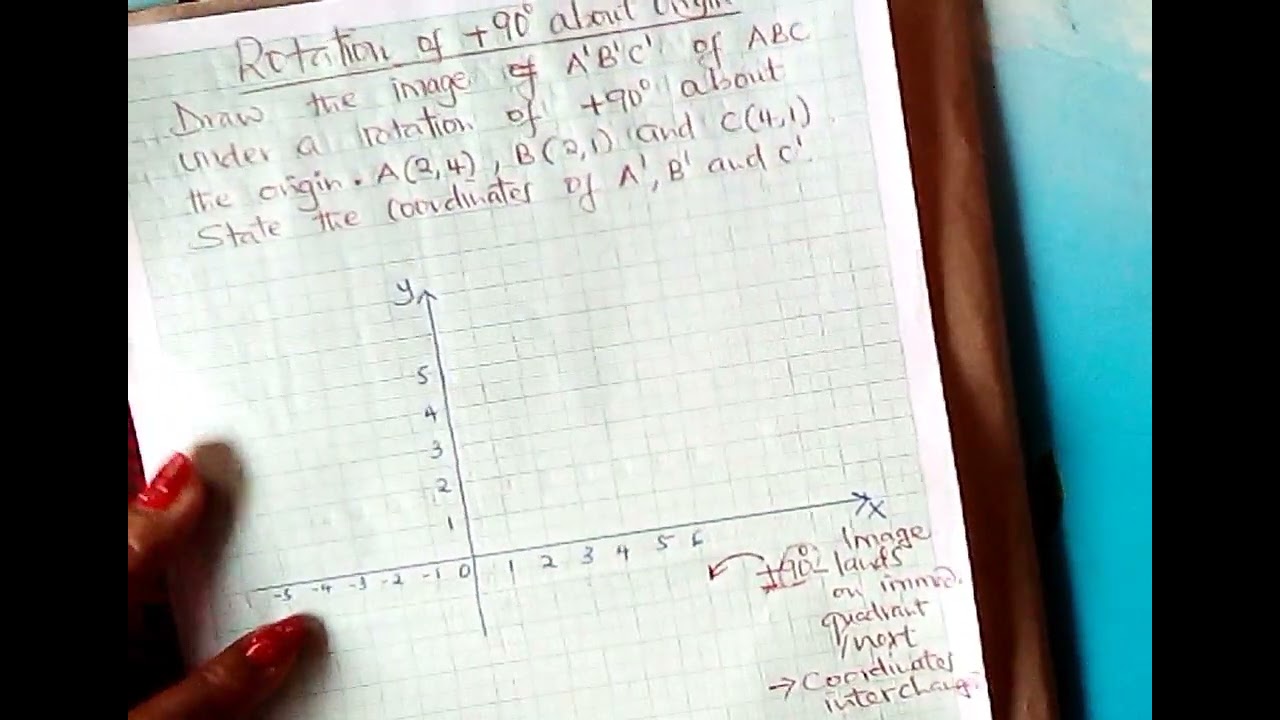 Rotation of +90° about Origin
Draw the image of A'B'C' of ABC
under a rotation of +90° about
the origin. A(2,4), B(2,1) and C(4,1)
State the coordinates of A', B' and C'.
y
5
4
3
2
1
-5 -4 -3 -2 -1 0 1 2 3 4 5 6
x
+90° Image
lands
on immed.
quadrant
/next
→ Coordinates
interchang